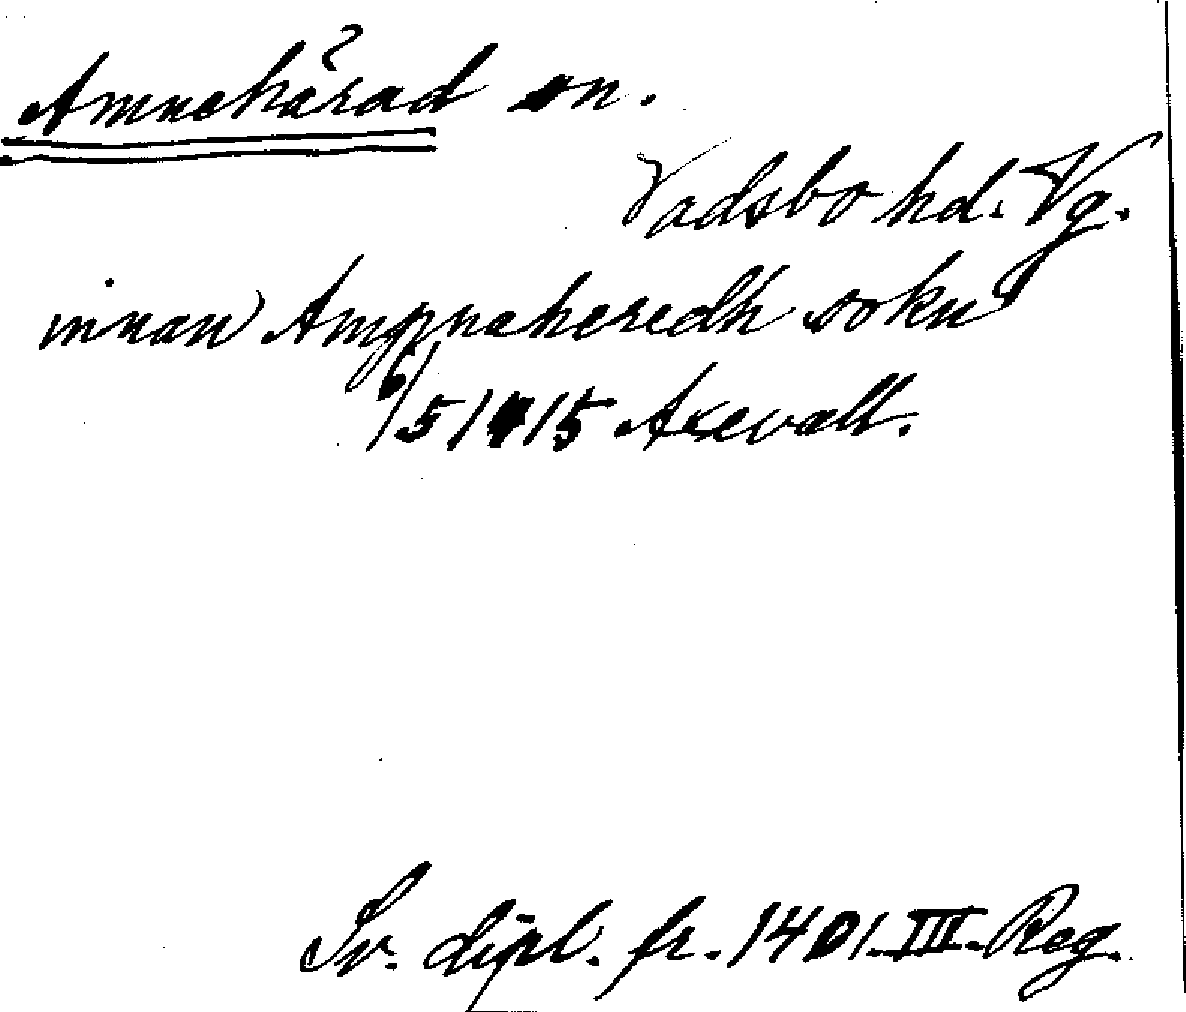 Amnehärad sn.
Vadsbo hd. Vg.
innan Ampnaheredh sokn
6/5 1415 Axevall.
Sv. dipl. fr. 1401. III. Reg.